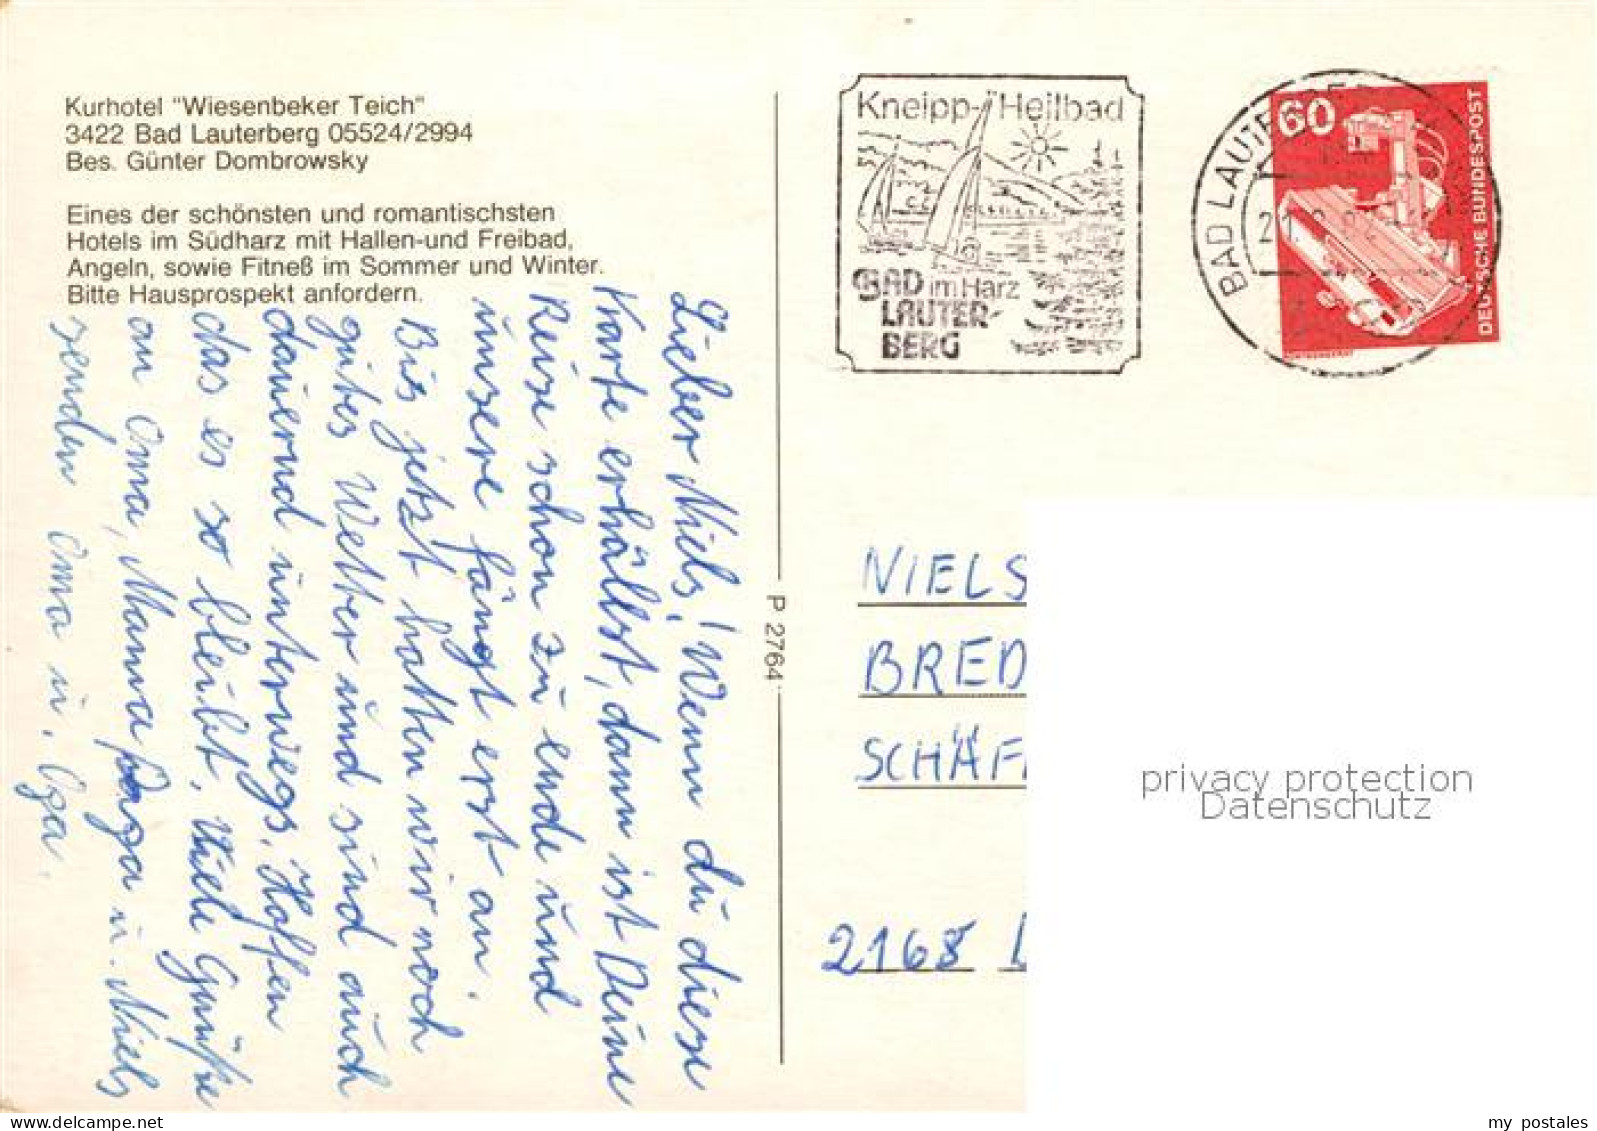 Kurhotel "Wiesenbeker Teich"
3422 Bad Lauterberg 05524/2994
Bes. Günter Dombrowsky
Eines der schönsten und romantischsten
Hotels im Südharz mit Hallen-und Freibad,
Angeln, sowie Fitneß im Sommer und Winter.
Bitte Hausprospekt anfordern.
Lieber Niels! Wenn du diese
Karte erhälst, dann ist Deine
Reise schon zu ende und
unsere fängt erst an.
Bis jetzt hatten wir noch
gutes Wetter und sind auch
dauernd unterwegs. Hoffen
das es so bleibt. Viele Grüße
an Oma, Mama Papa u. Niels
senden Oma u. Opa.
P 2764
Kneipp-Heilbad
BAD im Harz
LAUTER-
BERG
BAD LAUTERBERG
60
DEUTSCHE BUNDESPOST
NIELS
BRED
SCHÄF
2168
privacy protection
Datenschutz
my postales